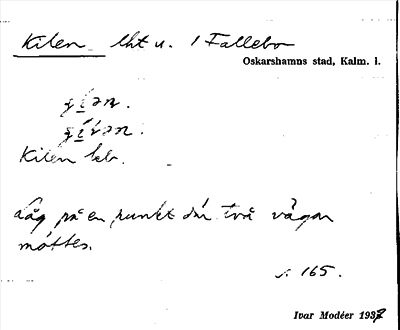 Kilen lht u. 1 Fallebo
Oskarshamns stad, Kalm. l.
Kilen leb.
Låg på en punkt där två vägar
möttes.
s. 165.
Ivar Modéer 1937